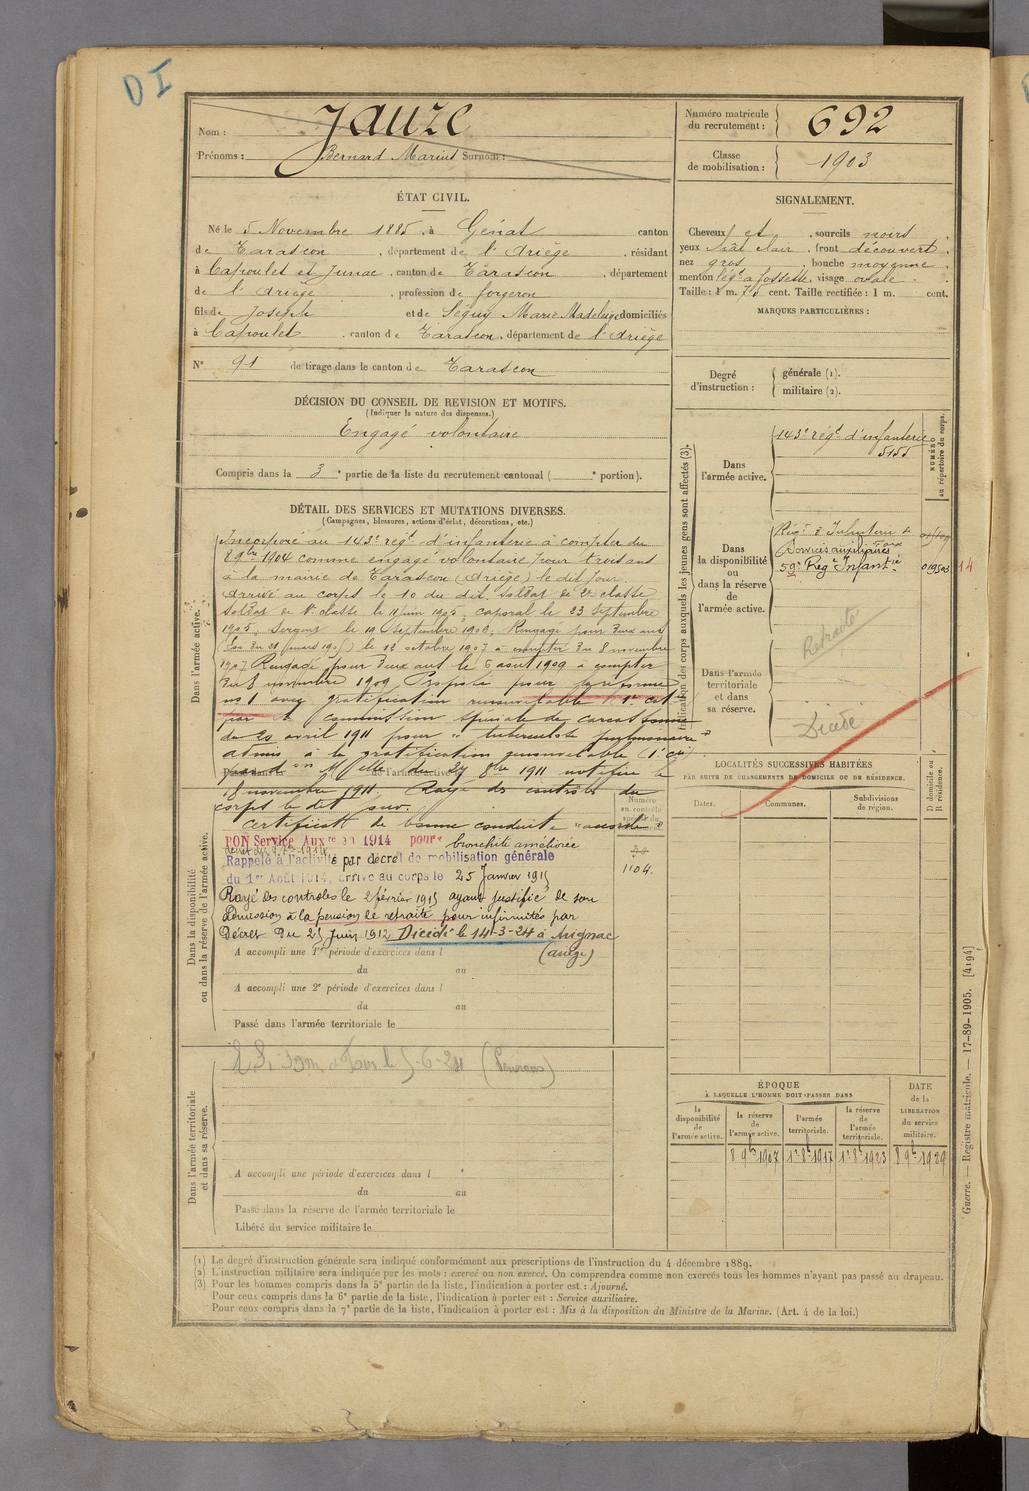 D I
Nom : Jauze
Prénoms : Bernard Marius Surnom :
Numéro matricule du recrutement : 692
Classe de mobilisation : 1903
ÉTAT CIVIL.
Né le 5 Novembre 1885, à Génat canton
de Tarascon, département de l'Ariège, résidant
à Capoulet et Junac, canton de Tarascon, département
de l'Ariège, profession de forgeron
fils de Joseph et de Séguy Marie Madeleine domiciliés
à Capoulet canton de Tarascon, département de l'Ariège
N° 91 de tirage dans le canton de Tarascon
SIGNALEMENT.
Cheveux et sourcils noirs
yeux clair, front découvert
nez gros, bouche moyenne
menton à fossette, visage ovale
Taille : 1 m. 75 cent. Taille rectifiée : 1 m. cent.
MARQUES PARTICULIÈRES :
Degré d'instruction : générale (1).
militaire (2).
DÉCISION DU CONSEIL DE REVISION ET MOTIFS.
(Indiquer la nature des dispenses.)
Engagé volontaire
Compris dans la 3e partie de la liste du recrutement cantonal ( e portion).
DÉTAIL DES SERVICES ET MUTATIONS DIVERSES.
(Campagnes, blessures, actions d'éclat, décorations, etc.)
Dans l'armée active.
Incorporé au 143e régt d'infanterie à compter du
8 9bre 1904 comme engagé volontaire pour trois ans
à la mairie de Tarascon (Ariège) le dit jour.
Arrivé au corps le 10 du dit, soldat de 2e classe
soldat de 1e classe le 11 juin 1905, caporal le 23 Septembre
1905, Sergent le 19 Septembre 1906, Rengagé pour deux ans
(Loi du 21 mars 1905) le 12 octobre 1907 à compter du 8 novembre
1907 Rengagé pour deux ans le 6 août 1909 à compter
du 8 novembre 1909 Proposé pour la réforme
no 1 avec gratification renouvelable
par la commission spéciale de Carcassonne
du 20 avril 1911 pour "tuberculose pulmonaire"
Admis à la gratification renouvelable
Passé dans la de l'armée active
Melle du 27 8bre 1911 notifiée le
18 novembre 1911, Rayé des contrôles du
corps le dit jour.
Certificat de bonne conduite "accordé"
Dans la disponibilité ou dans la réserve de l'armée active.
BON Service Auxre en 1914 pour bronchite améliorée
Rappelé à l'activité par décret de mobilisation générale
du 1er Août 1914, arrivé au corps le 25 Janvier 1915
Rayé des contrôles le 2 février 1915 ayant justifié de son
admission à la pension de retraite pour infirmités par
Décret du 25 Juin 1912 Décédé le 14-3-24 à Mignac
(ariège)
Numéro au contrôle spécial du
1104.
A accompli une 1re période d'exercices dans l
du au
A accompli une 2e période d'exercices dans l
du au
Passé dans l'armée territoriale le
Dans l'armée territoriale et dans sa réserve.
A accompli une période d'exercices dans l
du au
Passé dans la réserve de l'armée territoriale le
Libéré du service militaire le
Indication des corps auxquels les jeunes gens sont affectés (3).
NUMÉRO au répertoire du corps.
Dans l'armée active.
143e régt d'infanterie
5155
Dans la disponibilité ou dans la réserve de l'armée active.
Régt d'Infanterie
Services auxiliaires
59e Régt Infantie 019503 14
Dans l'armée territoriale et dans sa réserve.
Retraité
Décédé
LOCALITÉS SUCCESSIVES HABITÉES
PAR SUITE DE CHANGEMENTS DE DOMICILE OU DE RÉSIDENCE.
Dates. Communes. Subdivisions de région. D domicile ou R résidence.
ÉPOQUE
À LAQUELLE L'HOMME DOIT-PASSER DANS
DATE de la LIBÉRATION du service militaire.
la disponibilité de l'armée active. la réserve de l'armée active. l'armée territoriale. la réserve de l'armée territoriale.
8 9bre 1907 1er 8bre 1917 1er 8bre 1923 8 9bre 1929
(1) Le degré d'instruction générale sera indiqué conformément aux prescriptions de l'instruction du 4 décembre 1889.
(2) L'instruction militaire sera indiquée par les mots : exercé ou non exercé. On comprendra comme non exercés tous les hommes n'ayant pas passé au drapeau.
(3) Pour les hommes compris dans la 5e partie de la liste, l'indication à porter est : Ajourné.
Pour ceux compris dans la 6e partie de la liste, l'indication à porter est : Service auxiliaire.
Pour ceux compris dans la 7e partie de la liste, l'indication à porter est : Mis à la disposition du Ministre de la Marine. (Art. 4 de la loi.)
Guerre. — Registre matricule. — 17-89-1905. [4194]